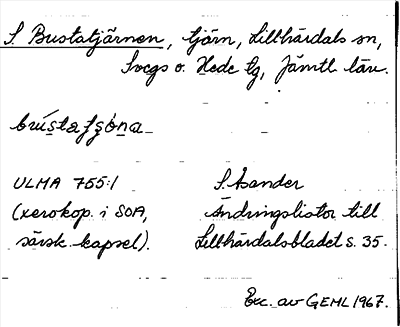 S. Bustatjärnen, tjärn, Lillhärdals sn,
Svegs o. Hede tg, Jämtl. län.
ULMA 755:1
S. Åsander
(xerokop. i SOA,
Ändringslistor till
särsk. kapsel).
Lillhärdalsbladet s. 35.
Exc. av GEHL 1967.